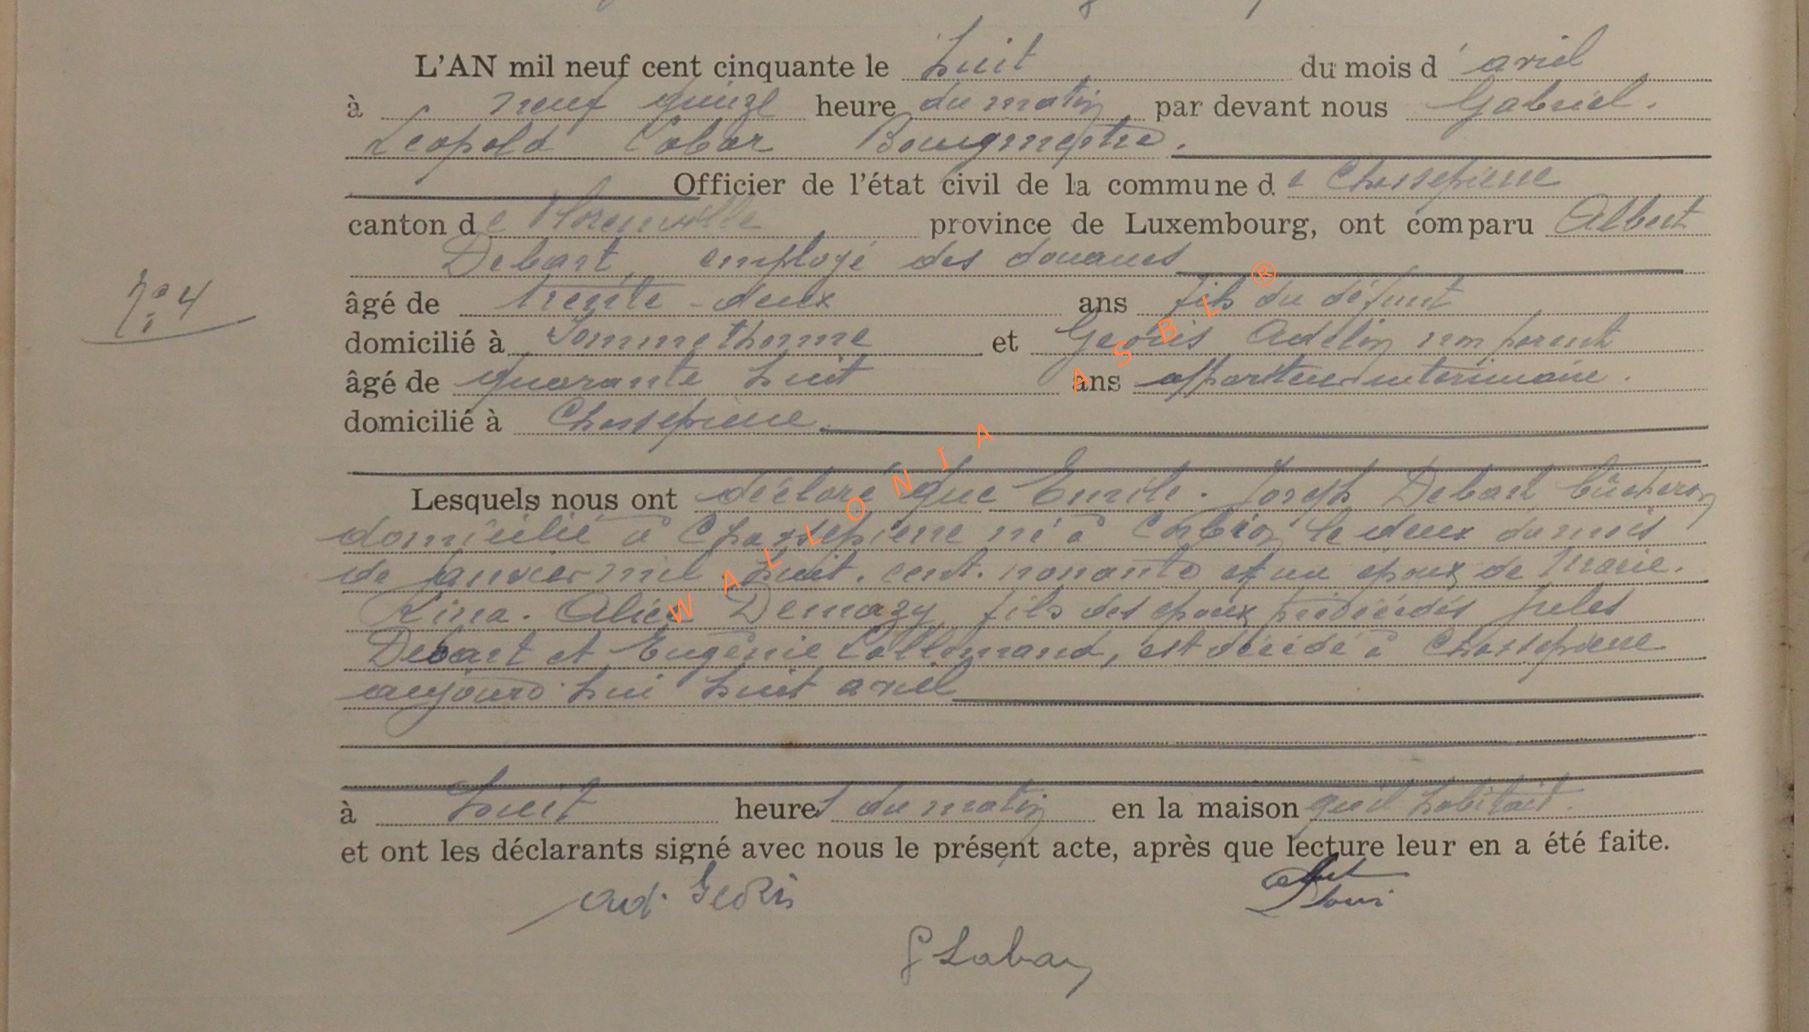 L'AN mil neuf cent cinquante le huit du mois d'avril
à neuf quinze heure du matin par devant nous Gabriel.
Leopold Labar Bourgmestre.
Officier de l'état civil de la commune de Chassepierre
canton de Florenville province de Luxembourg, ont comparu Albert
Debart, employé des douanes
N° 4
âgé de trente-deux ans fils du défunt
domicilié à Sommethonne et Georis Adelin non parent
âgé de quarante huit ans appariteur intérimaire.
domicilié à Chassepierre
Lesquels nous ont déclaré que Emile. Joseph Debart bûcheron
domicilié à Chassepierre né à Corbion le deux du mois
de janvier mil huit. cent. nonante et un époux de Marie.
Lina. Alice Demazy, fils des époux prédécédés Jules
Debart et Eugénie Lallemand, est décédé à Chassepierre
aujourd'hui huit avril
à huit heures du matin en la maison qu'il habitait.
et ont les déclarants signé avec nous le présent acte, après que lecture leur en a été faite.
Ad. Georis
G Labar
WALLONIA ASBL ®